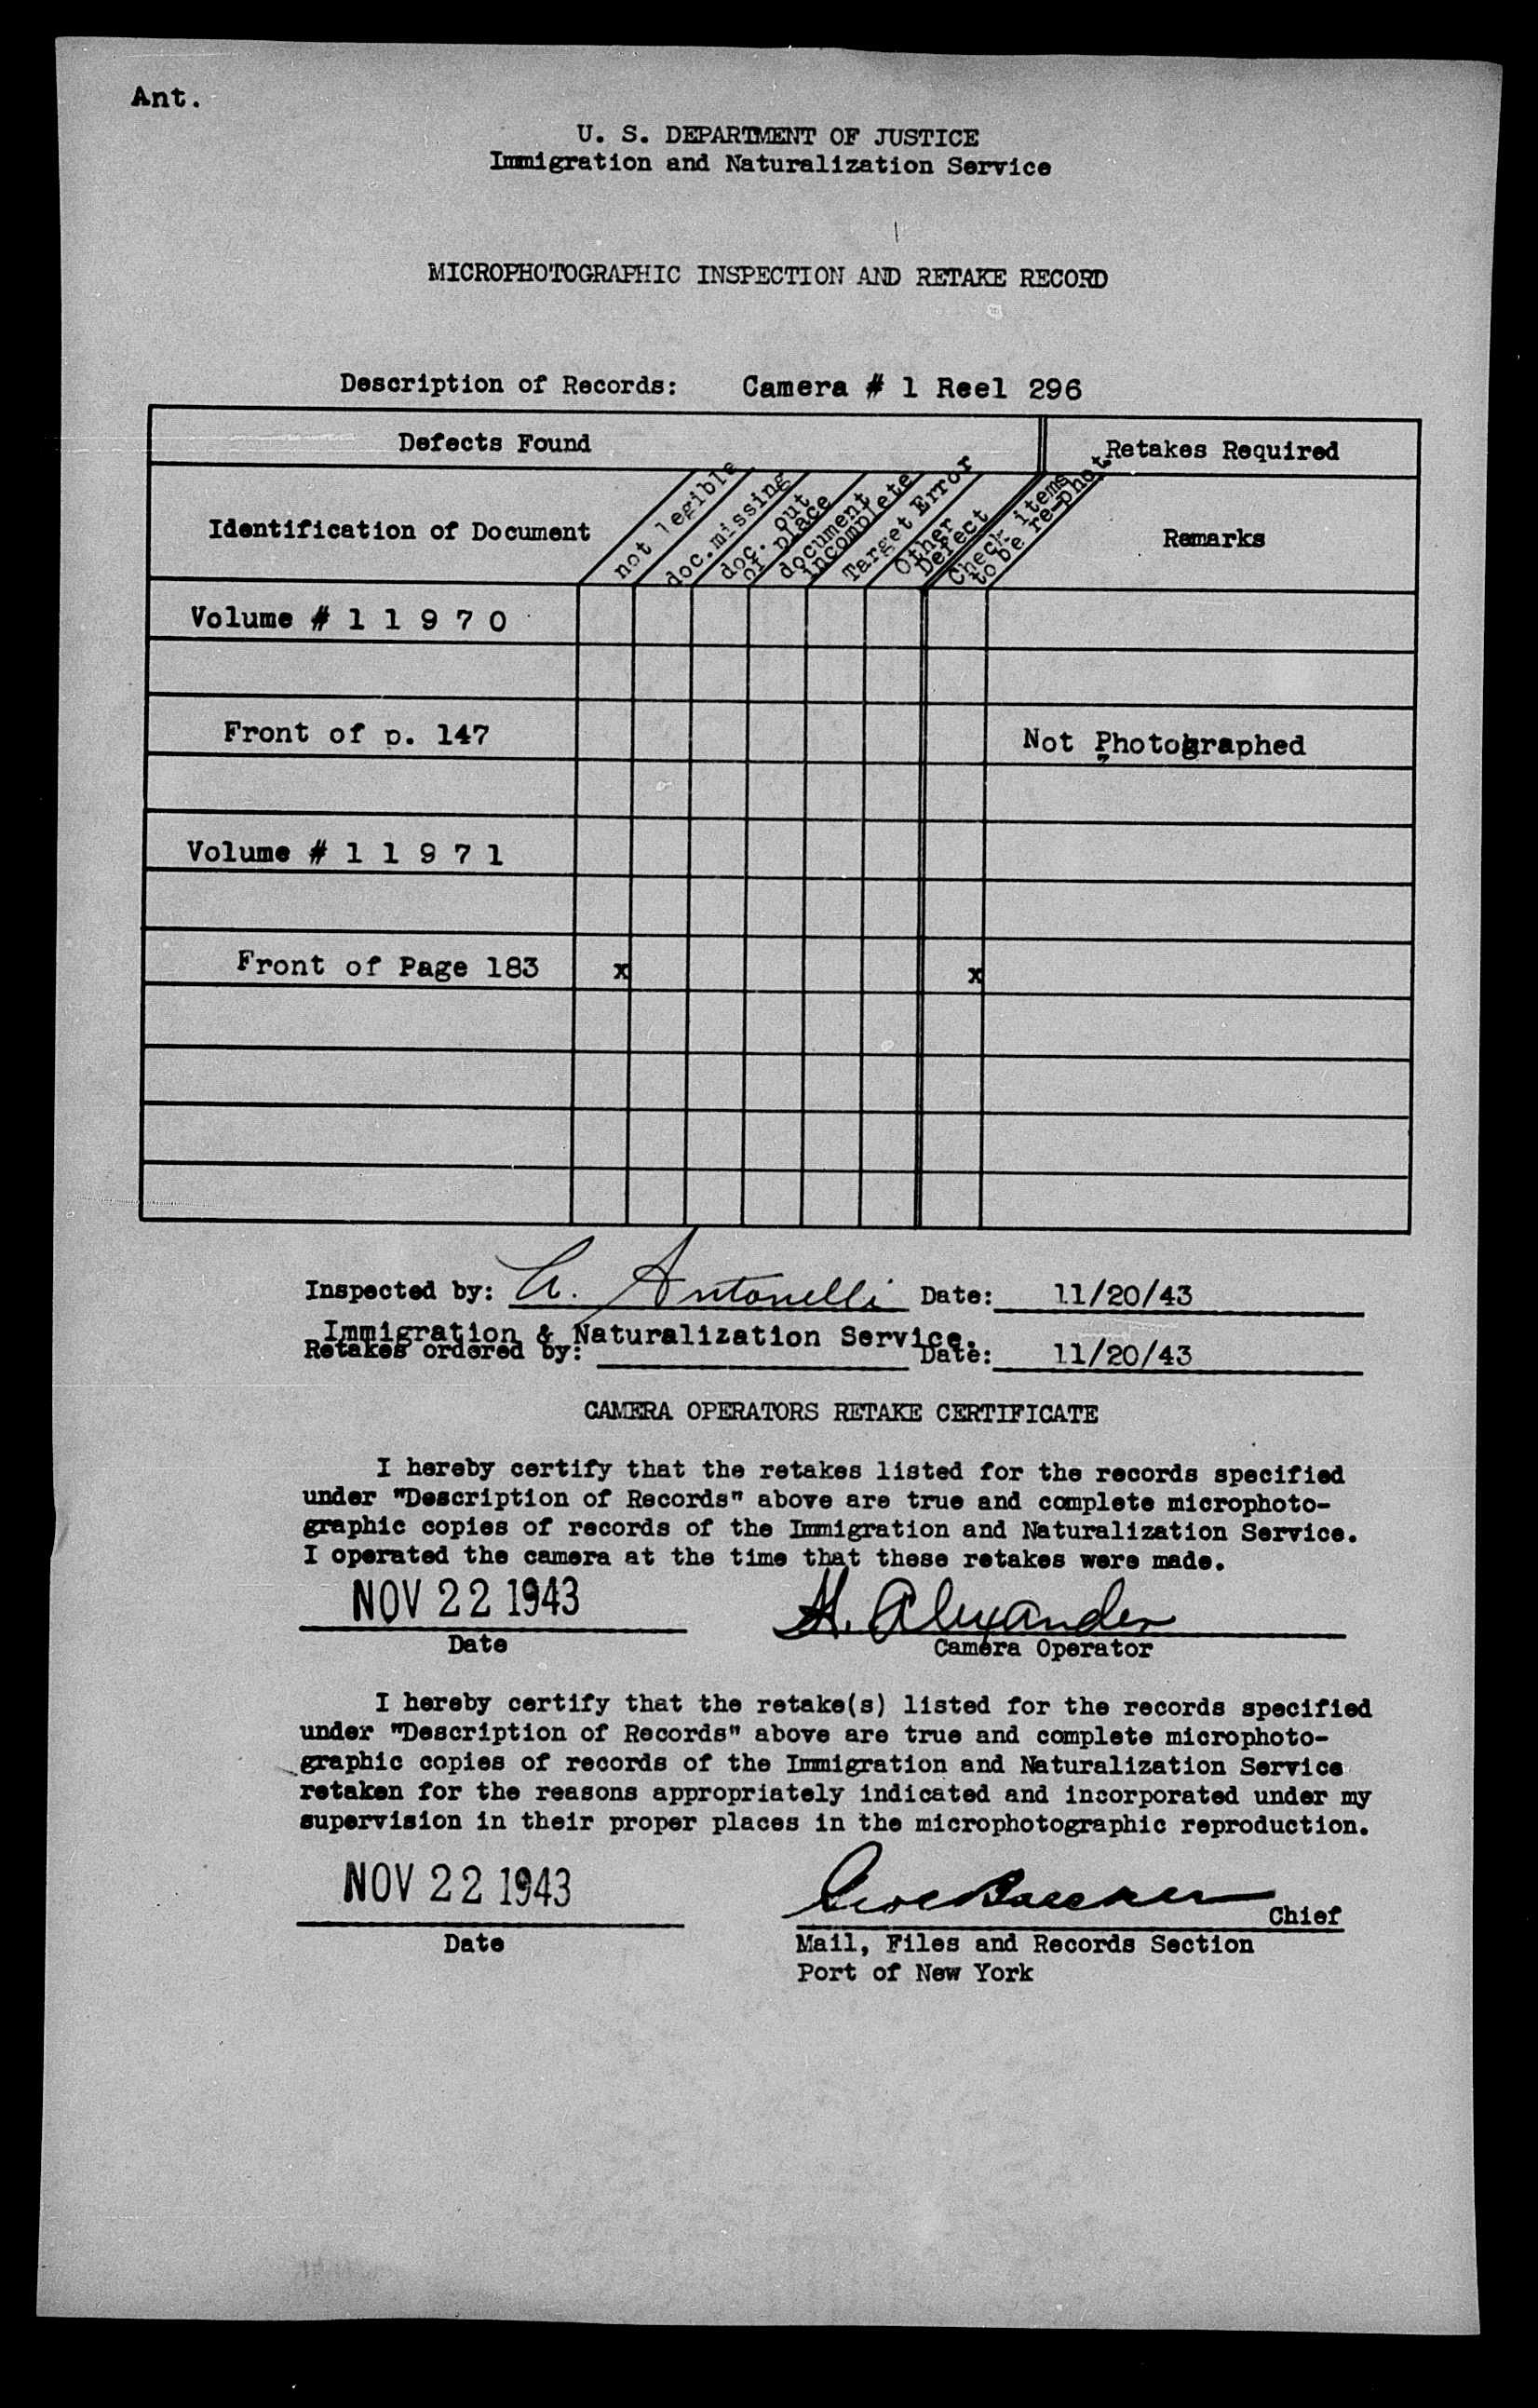 Ant.
U. S. DEPARTMENT OF JUSTICE
Immigration and Naturalization Service
MICROPHOTOGRAPHIC INSPECTION AND RETAKE RECORD
Description of Records: Camera # 1 Reel 296
Defects Found
Retakes Required
Identification of Document
not legible
doc.missing
doc. out
of place
document
incomplete
Target Error
Other
Defect
Check items
to be re-phot
Remarks
Volume # 1 1 9 7 0
Front of p. 147 Not Photographed
Volume # 1 1 9 7 1
Front of Page 183 x x
Inspected by: A. Antonelli Date: 11/20/43
Immigration & Naturalization Service.
Retakes ordered by: Date: 11/20/43
CAMERA OPERATORS RETAKE CERTIFICATE
I hereby certify that the retakes listed for the records specified
under "Description of Records" above are true and complete microphoto-
graphic copies of records of the Immigration and Naturalization Service.
I operated the camera at the time that these retakes were made.
NOV 22 1943 H. Alexander
Date Camera Operator
I hereby certify that the retake(s) listed for the records specified
under "Description of Records" above are true and complete microphoto-
graphic copies of records of the Immigration and Naturalization Service
retaken for the reasons appropriately indicated and incorporated under my
supervision in their proper places in the microphotographic reproduction.
NOV 22 1943 Chief
Date Mail, Files and Records Section
Port of New York